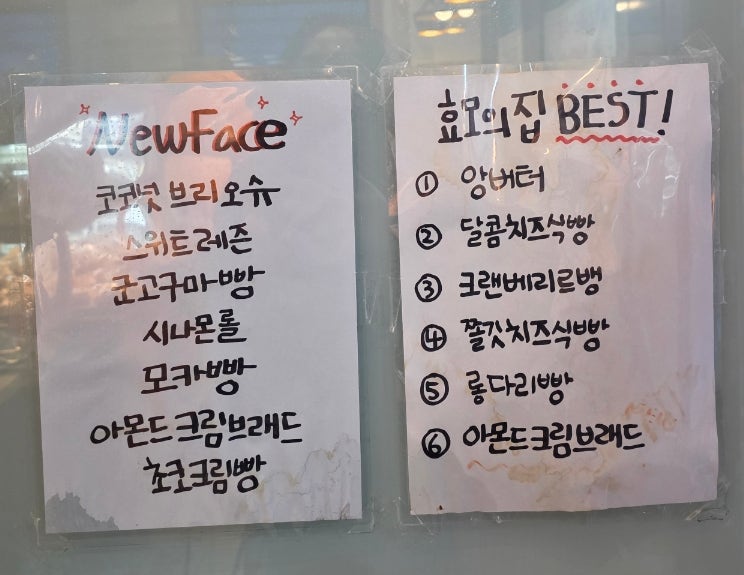 NewFace
코코넛 브리오슈
스위트레즌
군고구마빵
시나몬롤
모카빵
아몬드크림브래드
초코크림빵
효모의집 BEST!
① 앙버터
② 달콤치즈식빵
③ 크랜베리르뱅
④ 쫄깃치즈식빵
⑤ 롱다리빵
⑥ 아몬드크림브래드